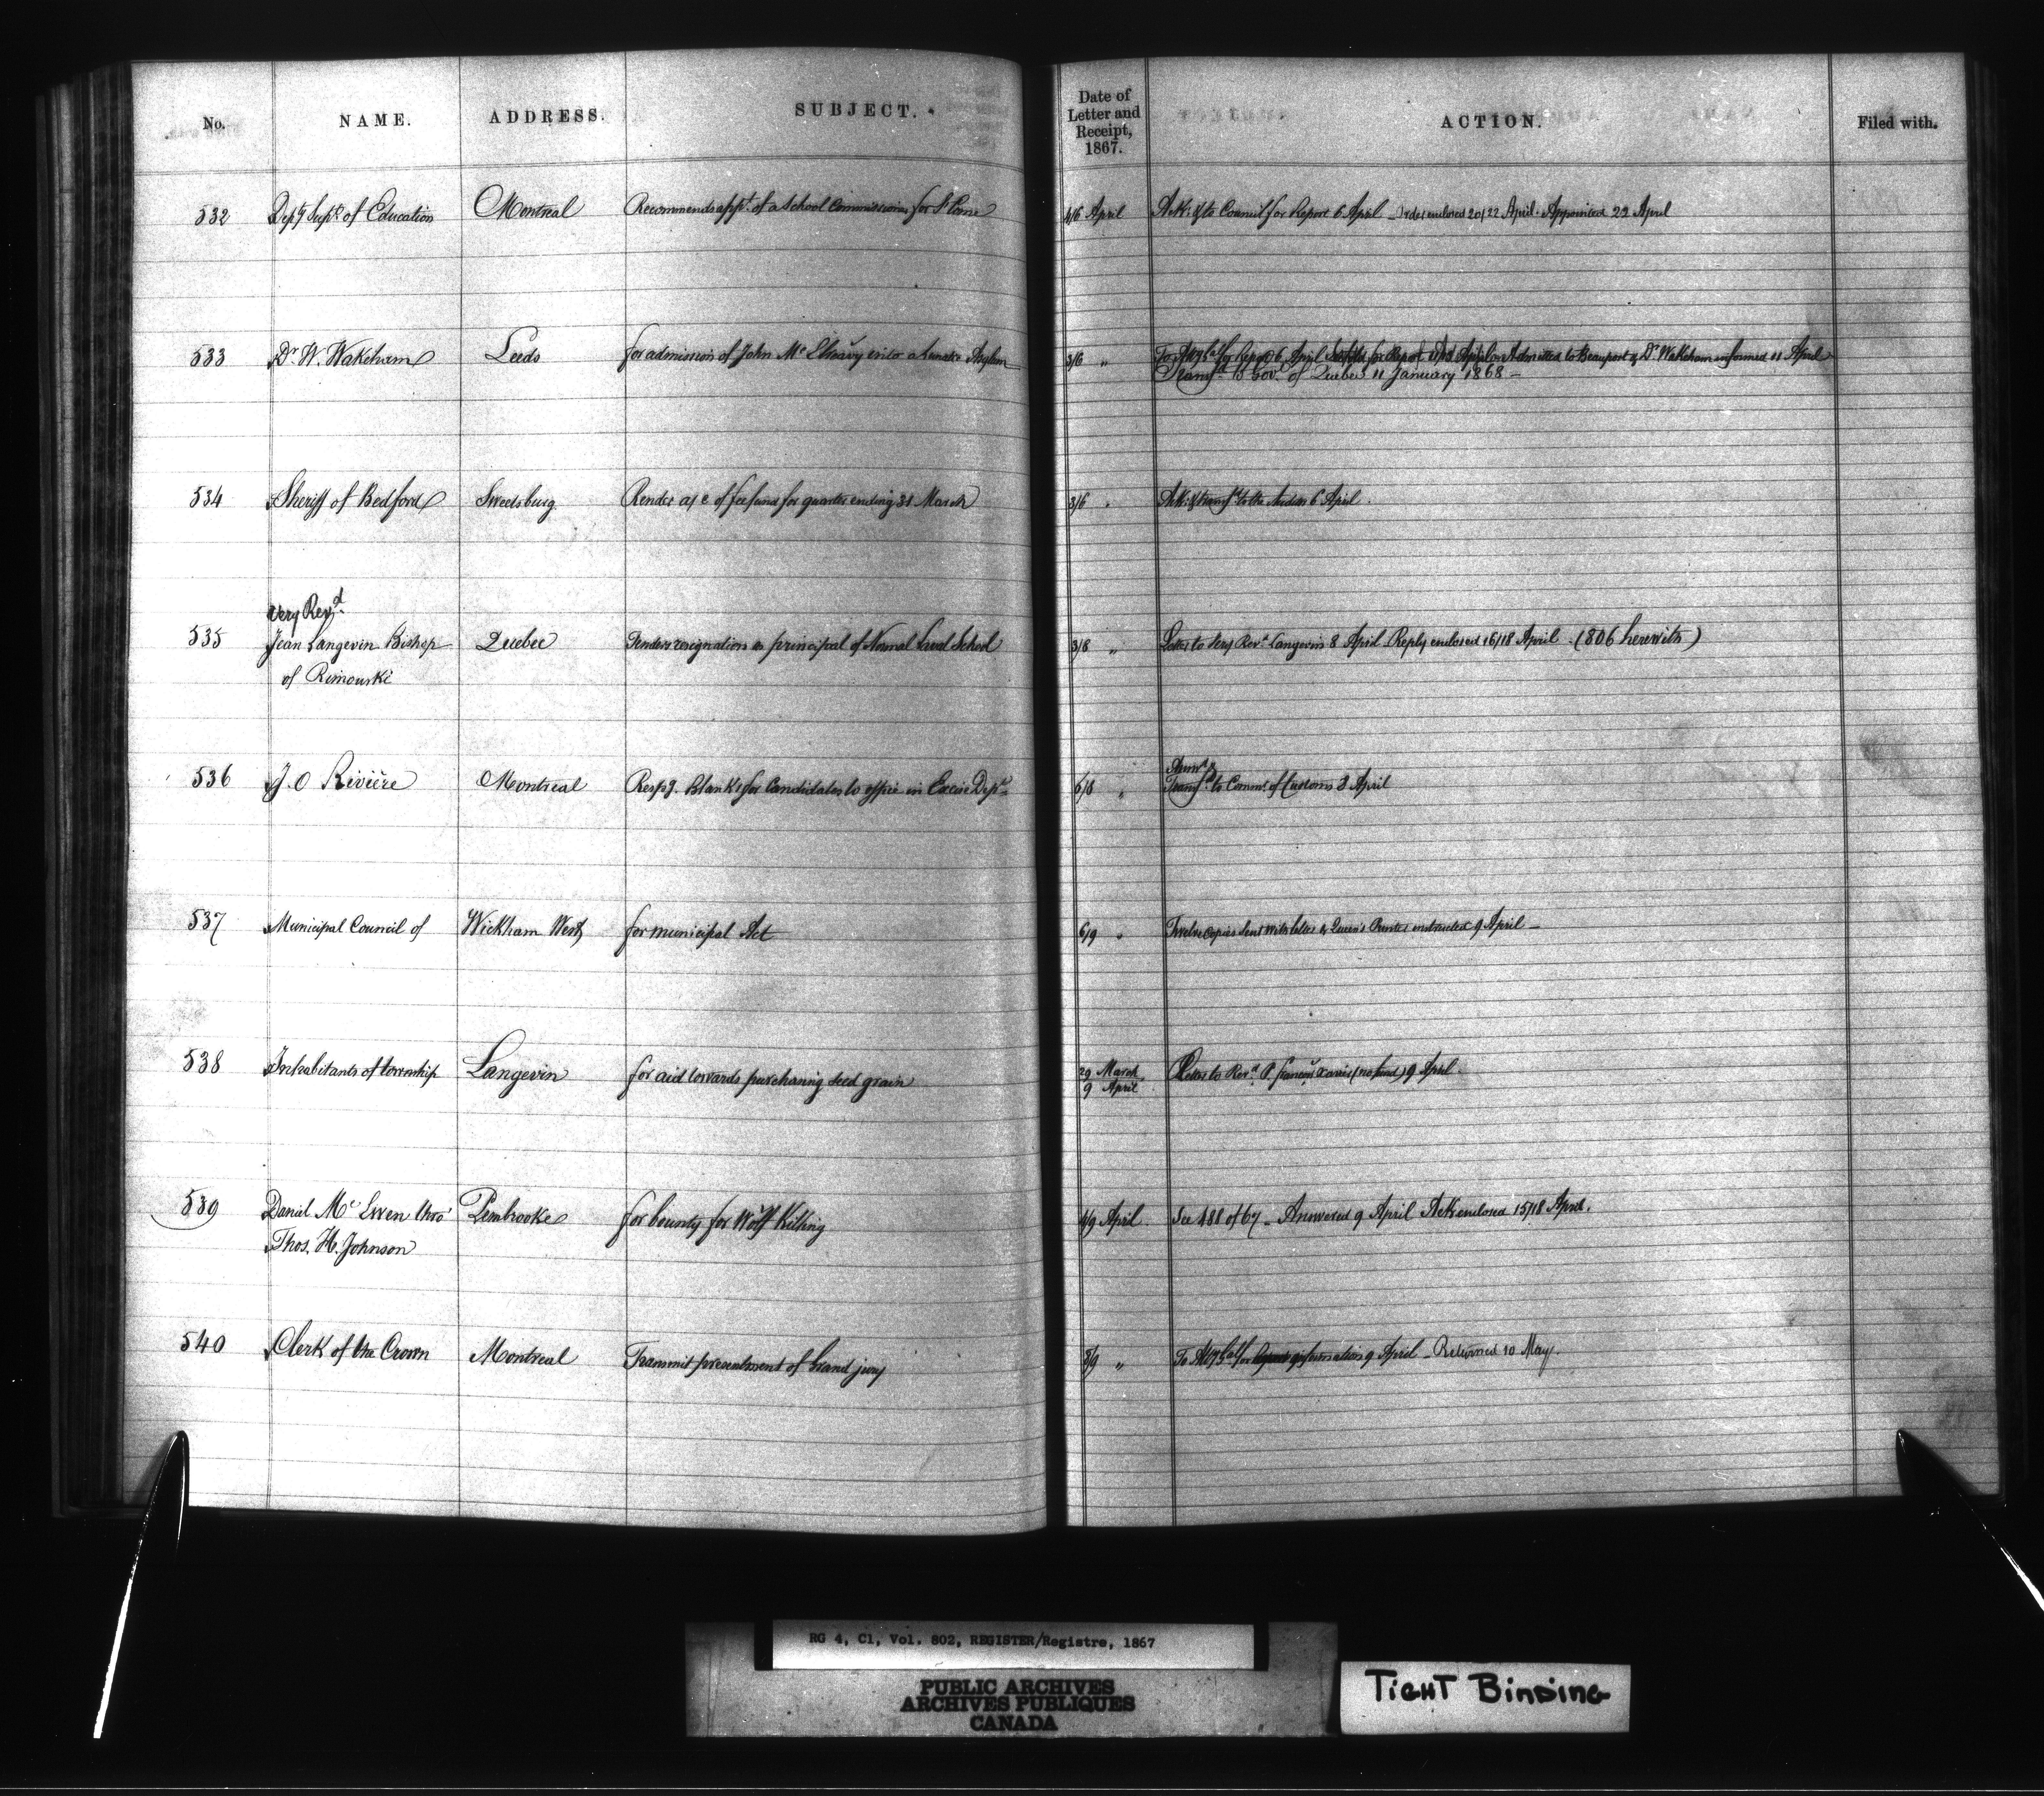 No. NAME. ADDRESS. SUBJECT. Date of Letter and Receipt, 1867. ACTION. Filed with.
532 Depy Supt of Education Montreal Recommends appt. of a School Commissioner for St Come 4/6 April Ack: & to Council for Report 6 April _ Order enclosed 20/22 April. Appointed 22 April
533 Dr W. Wakeham Leeds for admission of John Mc into a Lunatic Asylum 3/6 " To for Report 6 April Admitted to Beauport & Dr Wakeham informed 11 April
Transfd to Govt of Quebec 11 January 1868 _
534 Sheriff of Bedford Sweetsburg Render a/c of fee fund for quarter ending 31 March 3/6 " Ack: & transfd to the Auditor 6 April.
Very Revd.
535 Jean Langevin Bishop Quebec Tenders resignation as principal of Normal Laval School 3/8 " Letter to Very Revd Langevin 8 April Reply enclosed 16/18 April. (806 herewith)
of Rimouski
Answd &
536 J. O Rivière Montreal Respg. Blanks for Candidates to office in Excise Dept. 6/8 " Transfd to Commr. of Customs 8 April
537 Municipal Council of Wickham West for municipal Act 6/9 " Twelve copies sent with letter & Queen's Printer instructed 9 April _
538 Inhabitants of township Langevin for aid towards purchasing seed grain 29 March Letter to Revd. P. (no fund) 9 April.
9 April
539 Daniel Mc Ewen Pembrooke for bounty for Wolf Killing 4/9 April. See 488 of 67 _ Answered 9 April Ack enclosed 15/18 April.
Thos. H. Johnson
540 Clerk of the Crown Montreal Transmit presentment of Grand jury 8/9 " To for information 9 April _ Returned 10 May.
RG 4, C1, Vol. 802, REGISTER/Registre, 1867
PUBLIC ARCHIVES
ARCHIVES PUBLIQUES
CANADA
TIGHT BINDING